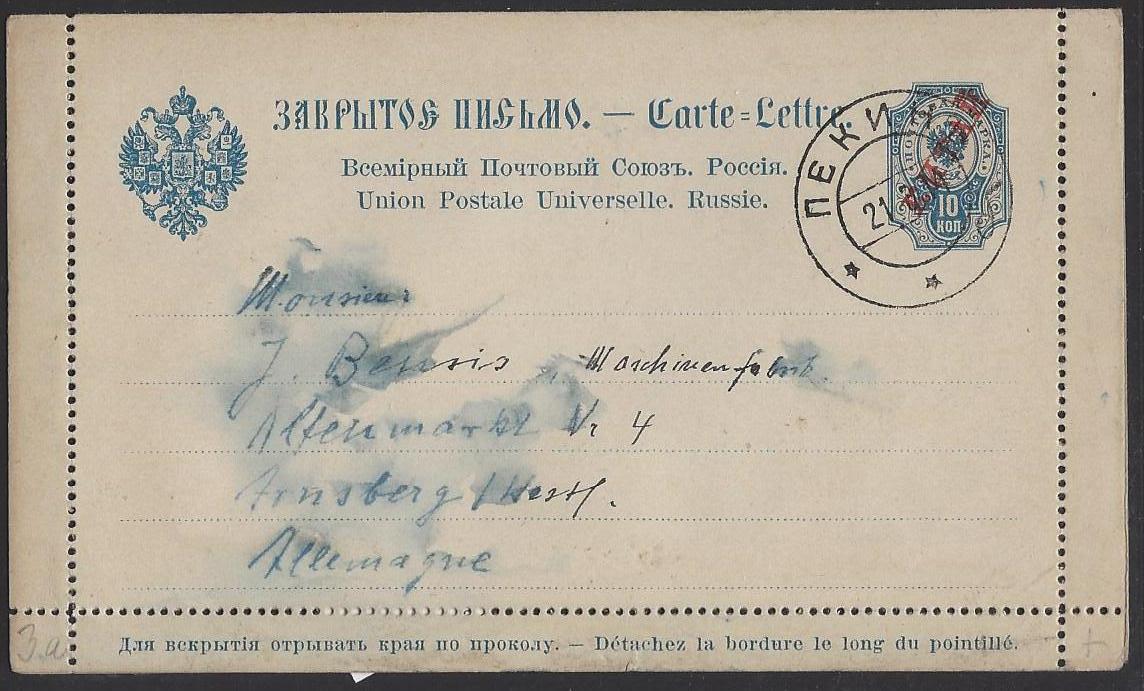 ЗАКРЫТОЕ ПИСЬМО. — Carte=Lettre.
Всемірный Почтовый Союзъ. Россія.
Union Postale Universelle. Russie.
ПЕКИ
21
10
КОП
Monsieur
J. Maschinenfabrik.
Altenmarkt Nr 4
Arnsberg / Westf.
Allemagne
Для вскрытія отрывать края по проколу. — Détachez la bordure le long du pointillé.
За